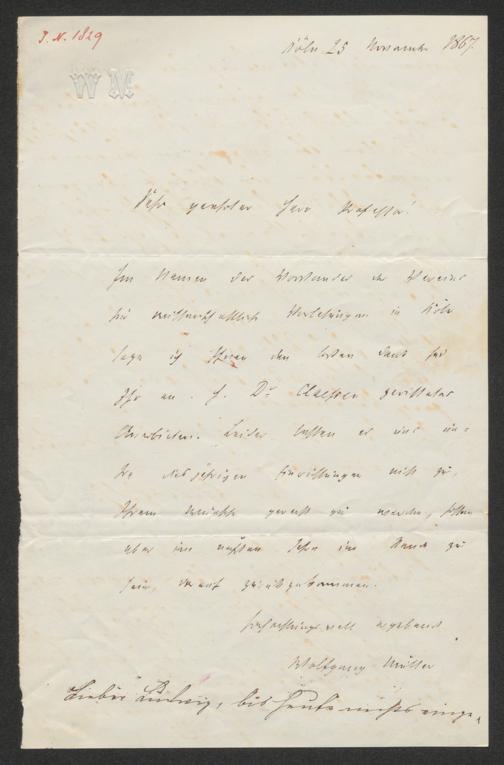 J. N. 1829
W M
Köln 25 November 1867.
Sehr geehrter Herr Professor!
Im Namen des Vorstandes des Vereins
für wissenschaftliche Vorlesungen in Köln
sage ich Ihnen den besten Dank für
Ihr an H. Dr. Claessen gerichtetes
Anerbieten. Leider lassen es uns un-
sre diesjährigen Einrichtungen nicht zu,
Ihrem Wunsche gerecht zu werden,
aber im nächsten Jahr im Stande zu
sein, darauf zurückzukommen.
Hochachtungsvoll ergebenst
Wolfgang Müller
Lieber Ludwig, bis heute nichts einge-